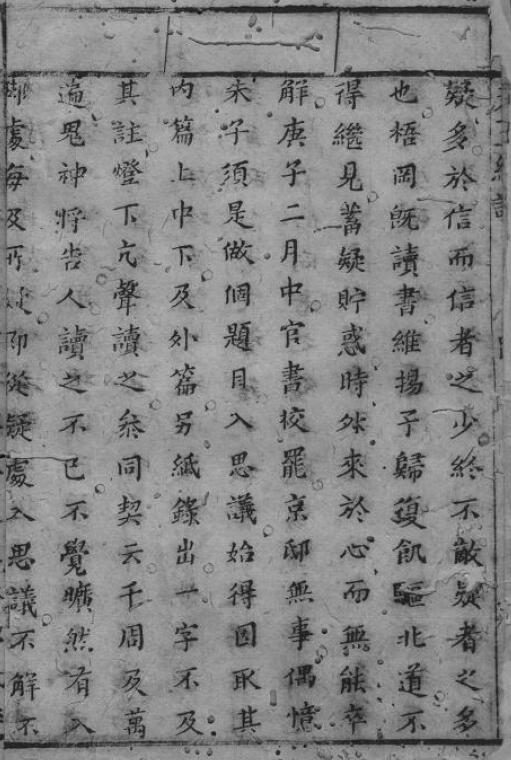 疑多於信而信者之少終不敵疑者之多
也梧岡旣讀書維揚予歸復飢驅北道不
得繼見蓄疑貯惑時然來於心而無能卒
解庚子二月中官書校罷京邸無事偶憶
朱子須是做個題目入思議始得因取其
內篇上中下及外篇另紙錄出一字不及
其註燈下亢聲讀之叅同契云千周及萬
遍鬼神將告人讀之不已不覺曠然有入
處每及所疑卽從疑處入思議不解不